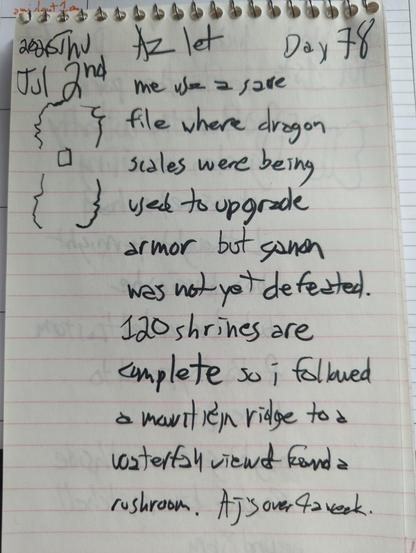 2026 Thu Az let Day 78
Jul 2nd me use a save
file where dragon
scales were being
used to upgrade
armor but ganon
was not yet defeated.
120 shrines are
complete so i followed
a mountain ridge to a
waterfall view & found a
rushroom. Aj's over 4 a week.